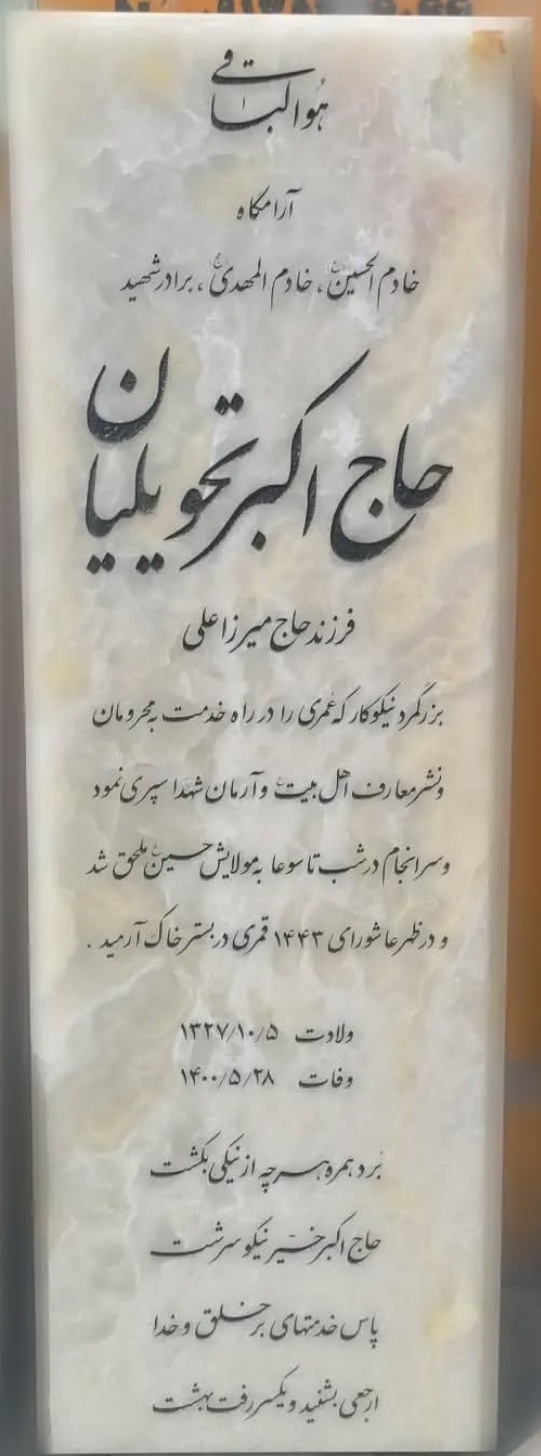 هُوالباقی
آرامگاه
خادم الحسین(ع)، خادم المهدی(عج)، برادر شهید
حاج اکبر تحویلیان
فرزند حاج میرزا علی
بزرگمرد نیکوکار که عُمری را در راه خدمت به محرومان
و نشر معارف اهل بیت(ع) و آرمان شهدا سپری نمود
و سرانجام در شب تاسوعا به مولایش حسین(ع) ملحق شد
و در ظهر عاشورای ۱۴۴۳ قمری در بستر خاک آرمید .
ولادت ۱۳۲۷/۱۰/۵
وفات ۱۴۰۰/۵/۲۸
بُرد همره هر چه از نیکی بکشت
حاج اکبر خیّر نیکو سرشت
پاس خدمتهای بر خلق و خدا
ارجعی بشنید و یکسر رفت بهشت